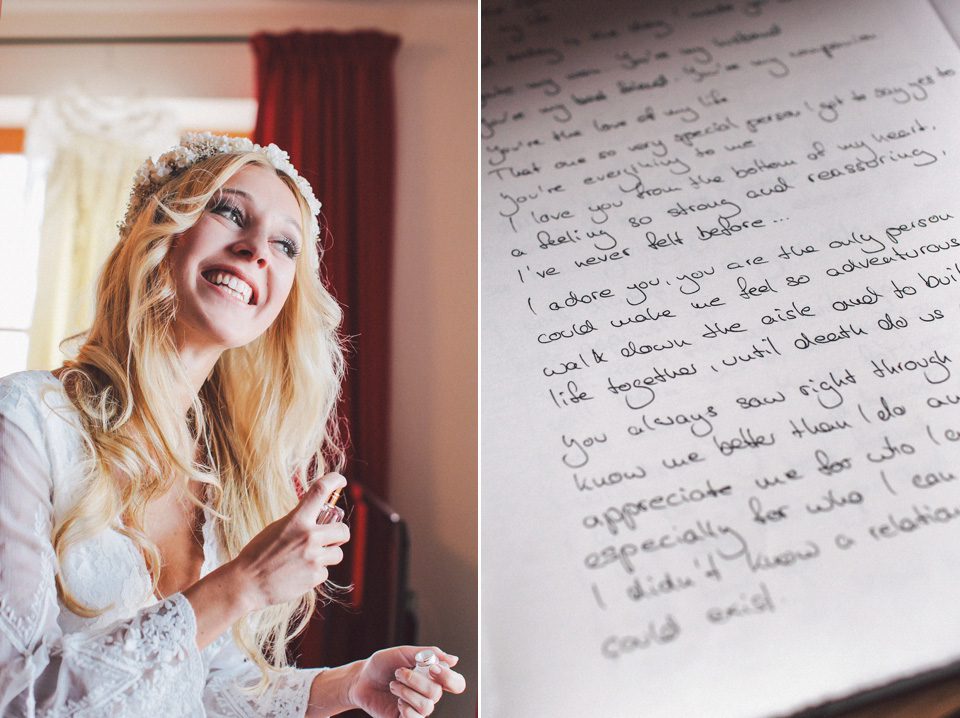 today is the day I make you
my man. You're my husband
You're my best friend. You're my companion
You're the love of my life
That one so very special person I got to say yes to
You're everything to me
I love you from the bottom of my heart,
a feeling so strong and reassuring,
I've never felt before...
I adore you, you are the only person
could make me feel so adventurous
walk down the aisle and to buil
life together, until death do us
You always saw right through
know me better than I do an
appreciate me for who I a
especially for who I can
I didn't know a relation
could exist